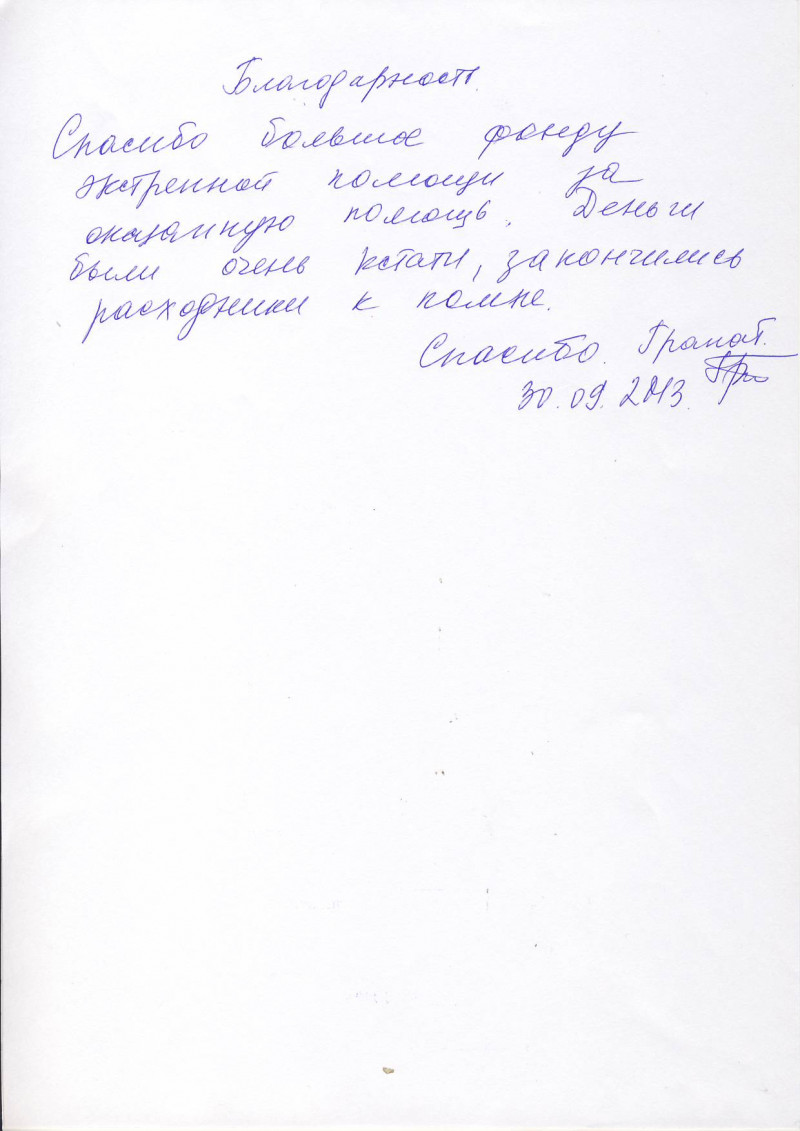 Благодарность.
Спасибо большое фонду
экстренной помощи за
оказанную помощь. Деньги
были очень кстати, закончились
расходники к помпе.
Спасибо. Гранат.
30.09.2013.